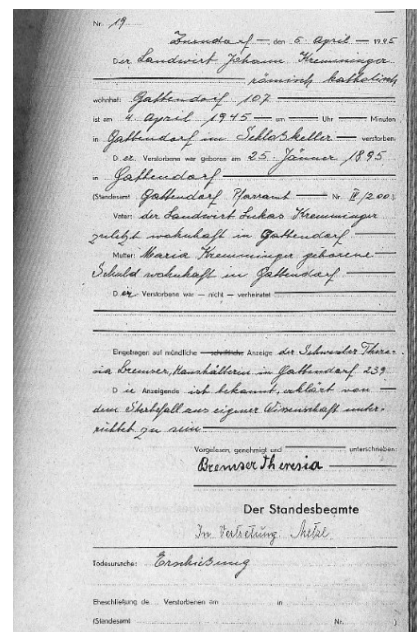 Nr. 19
Zurndorf, den 5. April 1945
Der Landwirt Johann Kremminger
römisch katholisch
wohnhaft Gattendorf 107
ist am 4. April 1945 um Uhr Minuten
in Gattendorf im Schloßkeller verstorben.
Der Verstorbene war geboren am 25. Jänner 1895
in Gattendorf
(Standesamt Gattendorf Pfarramt Nr. II/200)
Vater: der Landwirt Lukas Kremminger
zuletzt wohnhaft in Gattendorf
Mutter: Maria Kremminger geborene
Schuld wohnhaft in Gattendorf
Der Verstorbene war — nicht — verheiratet
Eingetragen auf mündliche — schriftliche — Anzeige der Schwester There-
sia Bremser, Haushälterin in Gattendorf 239.
Die Anzeigende ist bekannt, erklärt von
dem Sterbefall aus eigener Wissenschaft unter-
richtet zu sein
Vorgelesen, genehmigt und unterschrieben:
Bremser Theresia
Der Standesbeamte
In Vertretung
Todesursache: Erschießung
Eheschließung de Verstorbenen am in
(Standesamt Nr. )